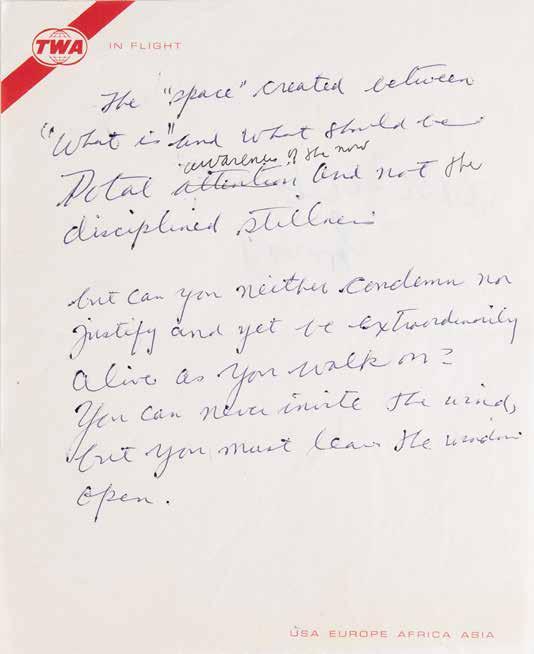 TWA IN FLIGHT
The "space" created between
"What is" and what should be.
awareness of the now
Total attention and not the
disciplined stillness
but can you neither condemn nor
justify and yet be extraordinarily
alive as you walk on?
You can never invite the wind,
but you must leave the window
open.
USA EUROPE AFRICA ASIA